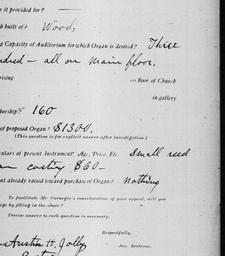 is it provided for?
ch built of? Wood,
g Capacity of Auditorium for which Organ is desired? Three
ndred - all on main floor,
rising on floor of Church
in gallery
bership? 160
of proposed Organ? $1300.
(This question is for explicit answer after investigation.)
culars of present Instrument? Age, Price, Etc. Small reed
an costing $60-
nt already raised toward purchase of Organ? Nothing
To facilitate Mr. Carnegie's consideration of your appeal, will you
ge by filling in the above?
Precise answer to each question is necessary.
Respectfully,
Jas. Bertram.
Austin H. Jolly